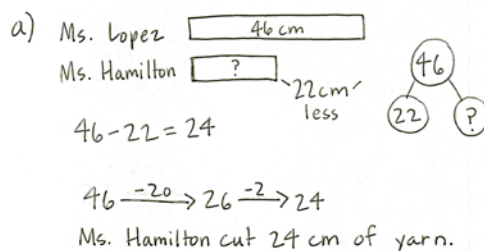 a) Ms. Lopez 46 cm
Ms. Hamilton ?
22cm
less
46
22 ?
46-22=24
46 -20→ 26 -2→ 24
Ms. Hamilton cut 24 cm of yarn.